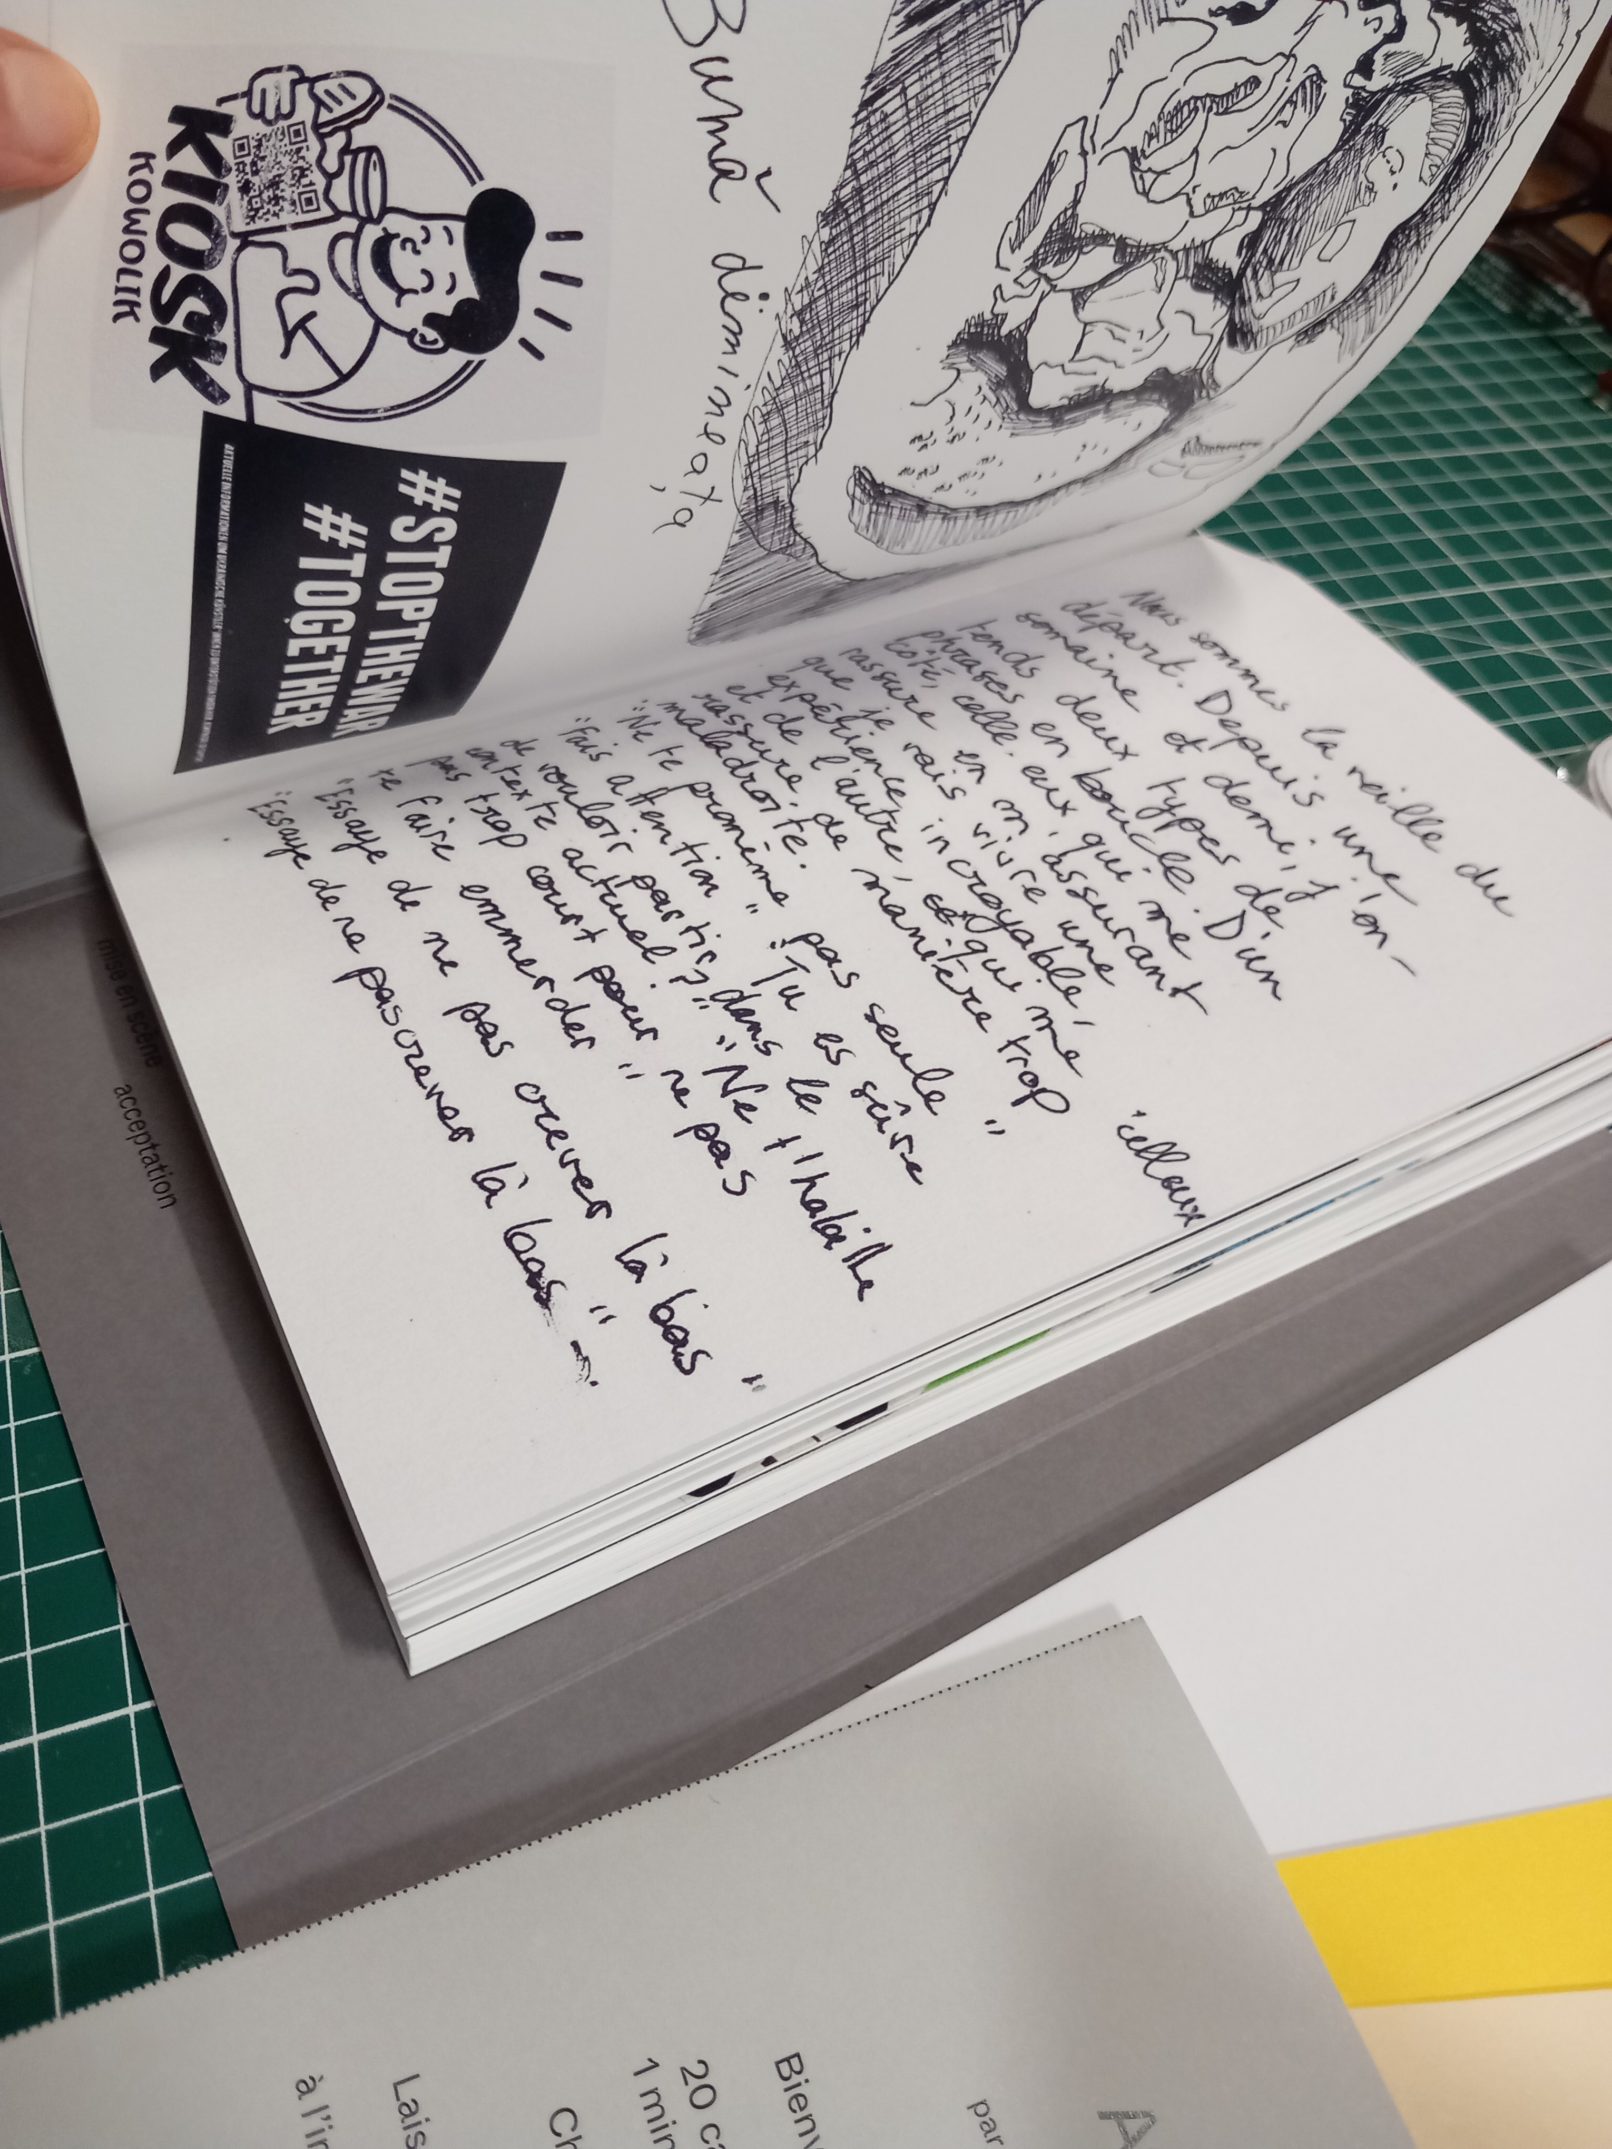 Bună dimineața
KIOSK
KOWOLIK
#STOPTHEWAR
#TOGETHER
Nous sommes la veille du
départ. Depuis une
semaine et demi, j'en-
tends deux types de
phrases en boucle. D'un
côté, celle. eux qui me
rassure en m'assurant
que je vais vivre une
expérience incroyable,
et de l'autre, ce qui me
rassure de manière trop
maladroite.
"Ne te promène pas seule"
"Fais attention" "Tu es sûre
de vouloir partir dans le
contexte actuel?" "Ne t'habille
pas trop court pour ne pas
te faire emmerder"
"Essaye de ne pas crever là bas"
"Essaye de ne pas crever là bas"
celleux
mise en scène
acceptation
A
par
Bienv
20 ca
1 min
Ch
Lais
à l'in